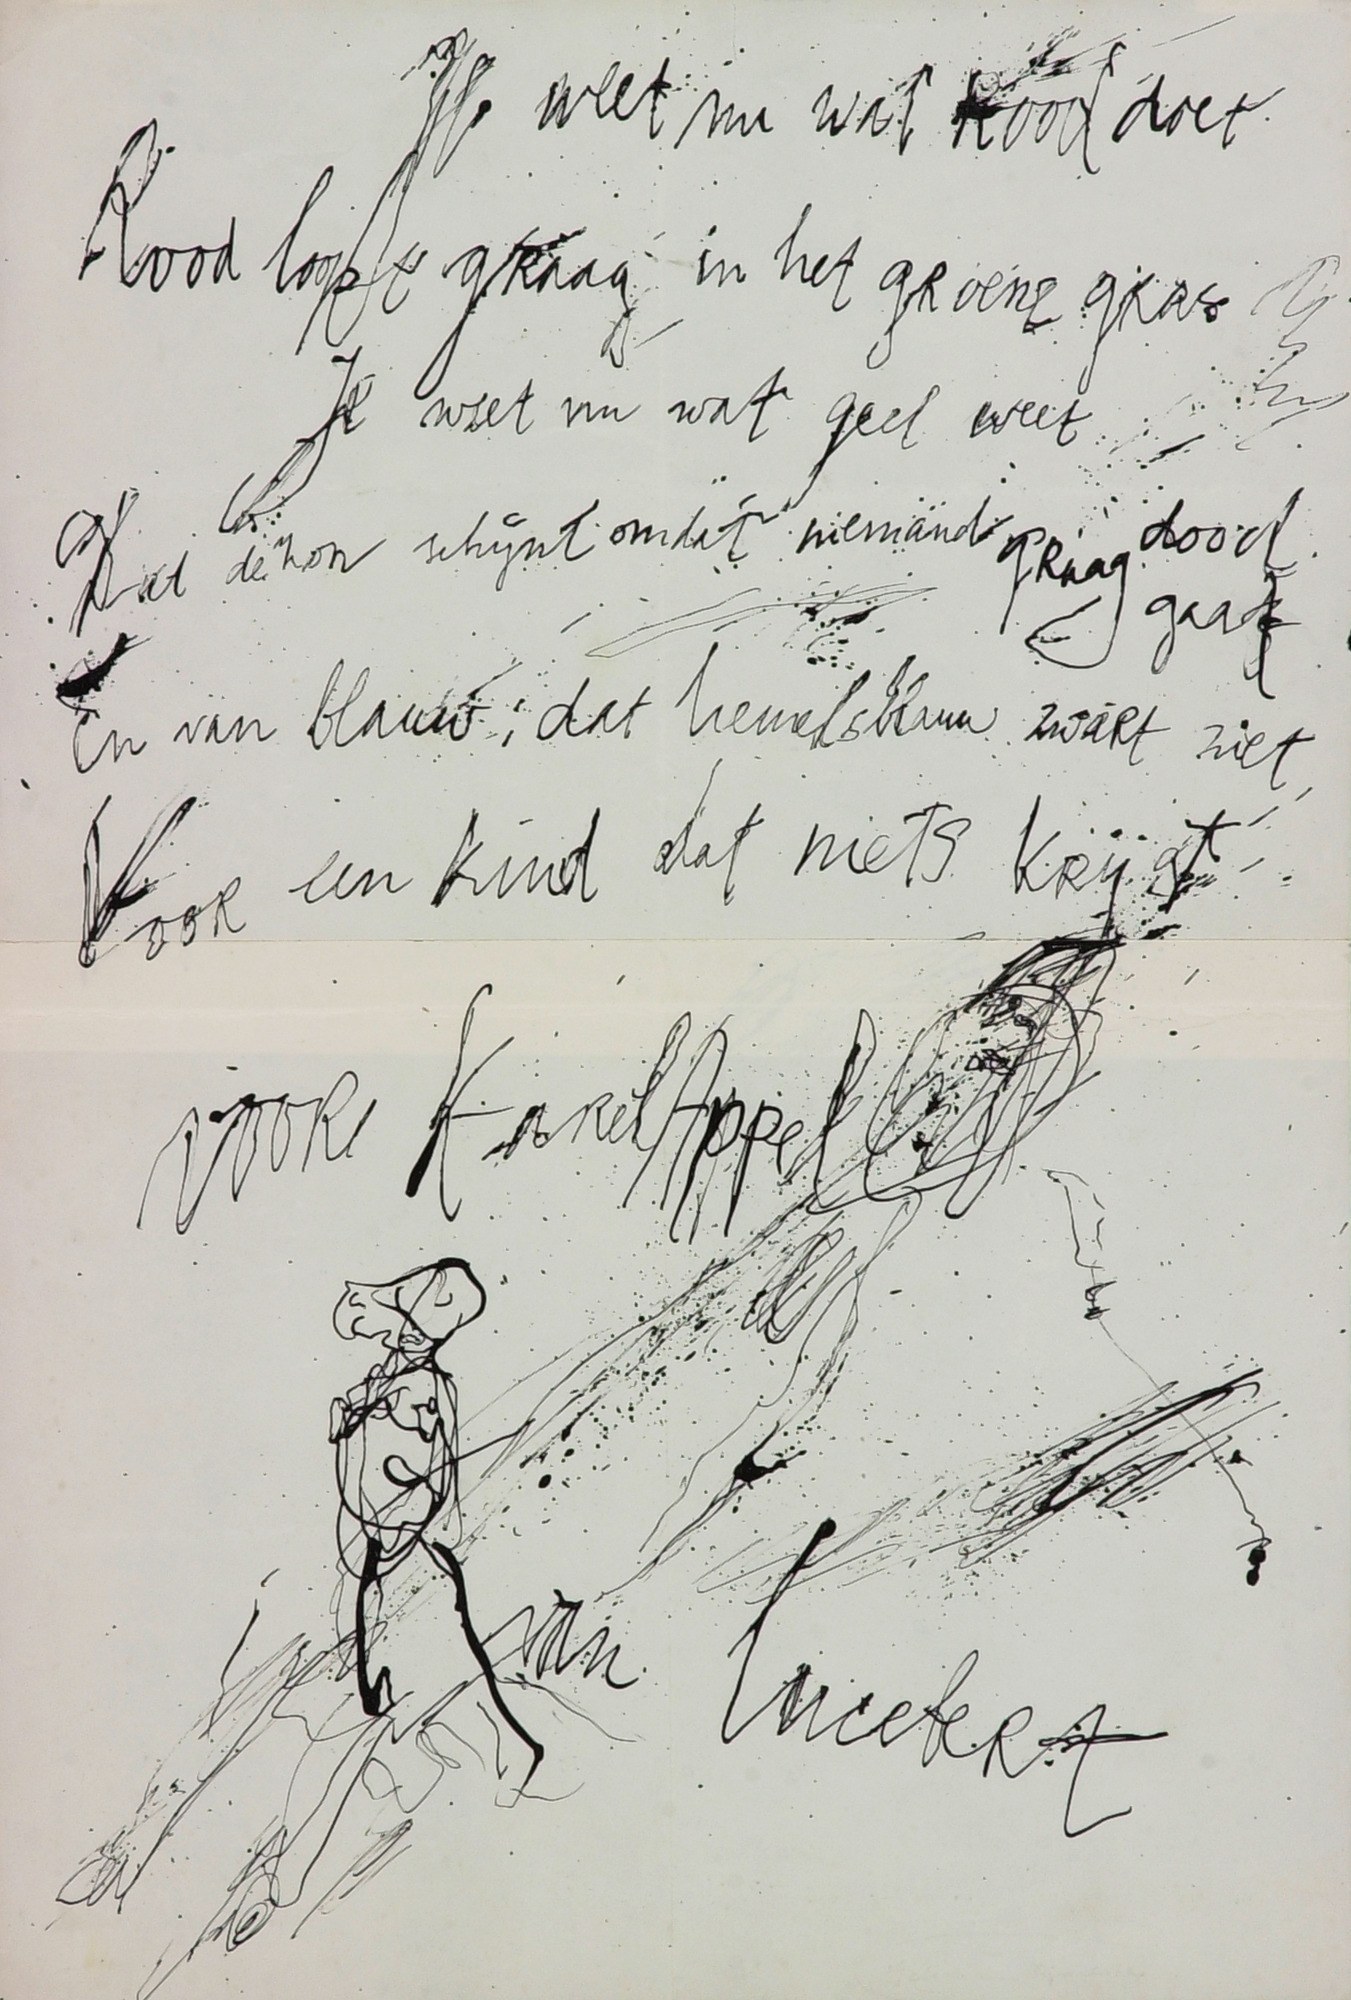 Ik weet nu wat Rood doet
Rood loopt graag in het groene gras
Ik weet nu wat geel weet
Dat de zon schijnt omdat niemand graag dood
gaat
En van blauw, dat hemelsblauw zwart ziet
Voor een kind dat niets krijgt
voor Karel Appel
van
Lucebert